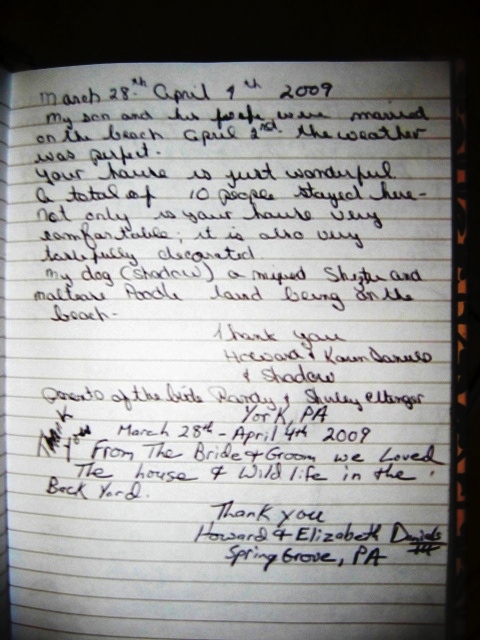 March 28th April 4th 2009
My son and his were married
on the beach April 2nd. the weather
was perfect.
Your house is just wonderful
a total of 10 people stayed here-
not only is your house very
comfortable; it is also very
tastefully decorated
My dog (Shadow) a mixed and
maltese Poodle loved being on the
beach.
Thank you
Howard & Karen
& Shadow
parents of the bride Randy & Shirley
York, PA
Thank you
March 28th - April 4th 2009
From The Bride & Groom we Loved
The house & Wild life in the
Back Yard.
Thank you
Howard & Elizabeth Daniels
III
Spring Grove, PA